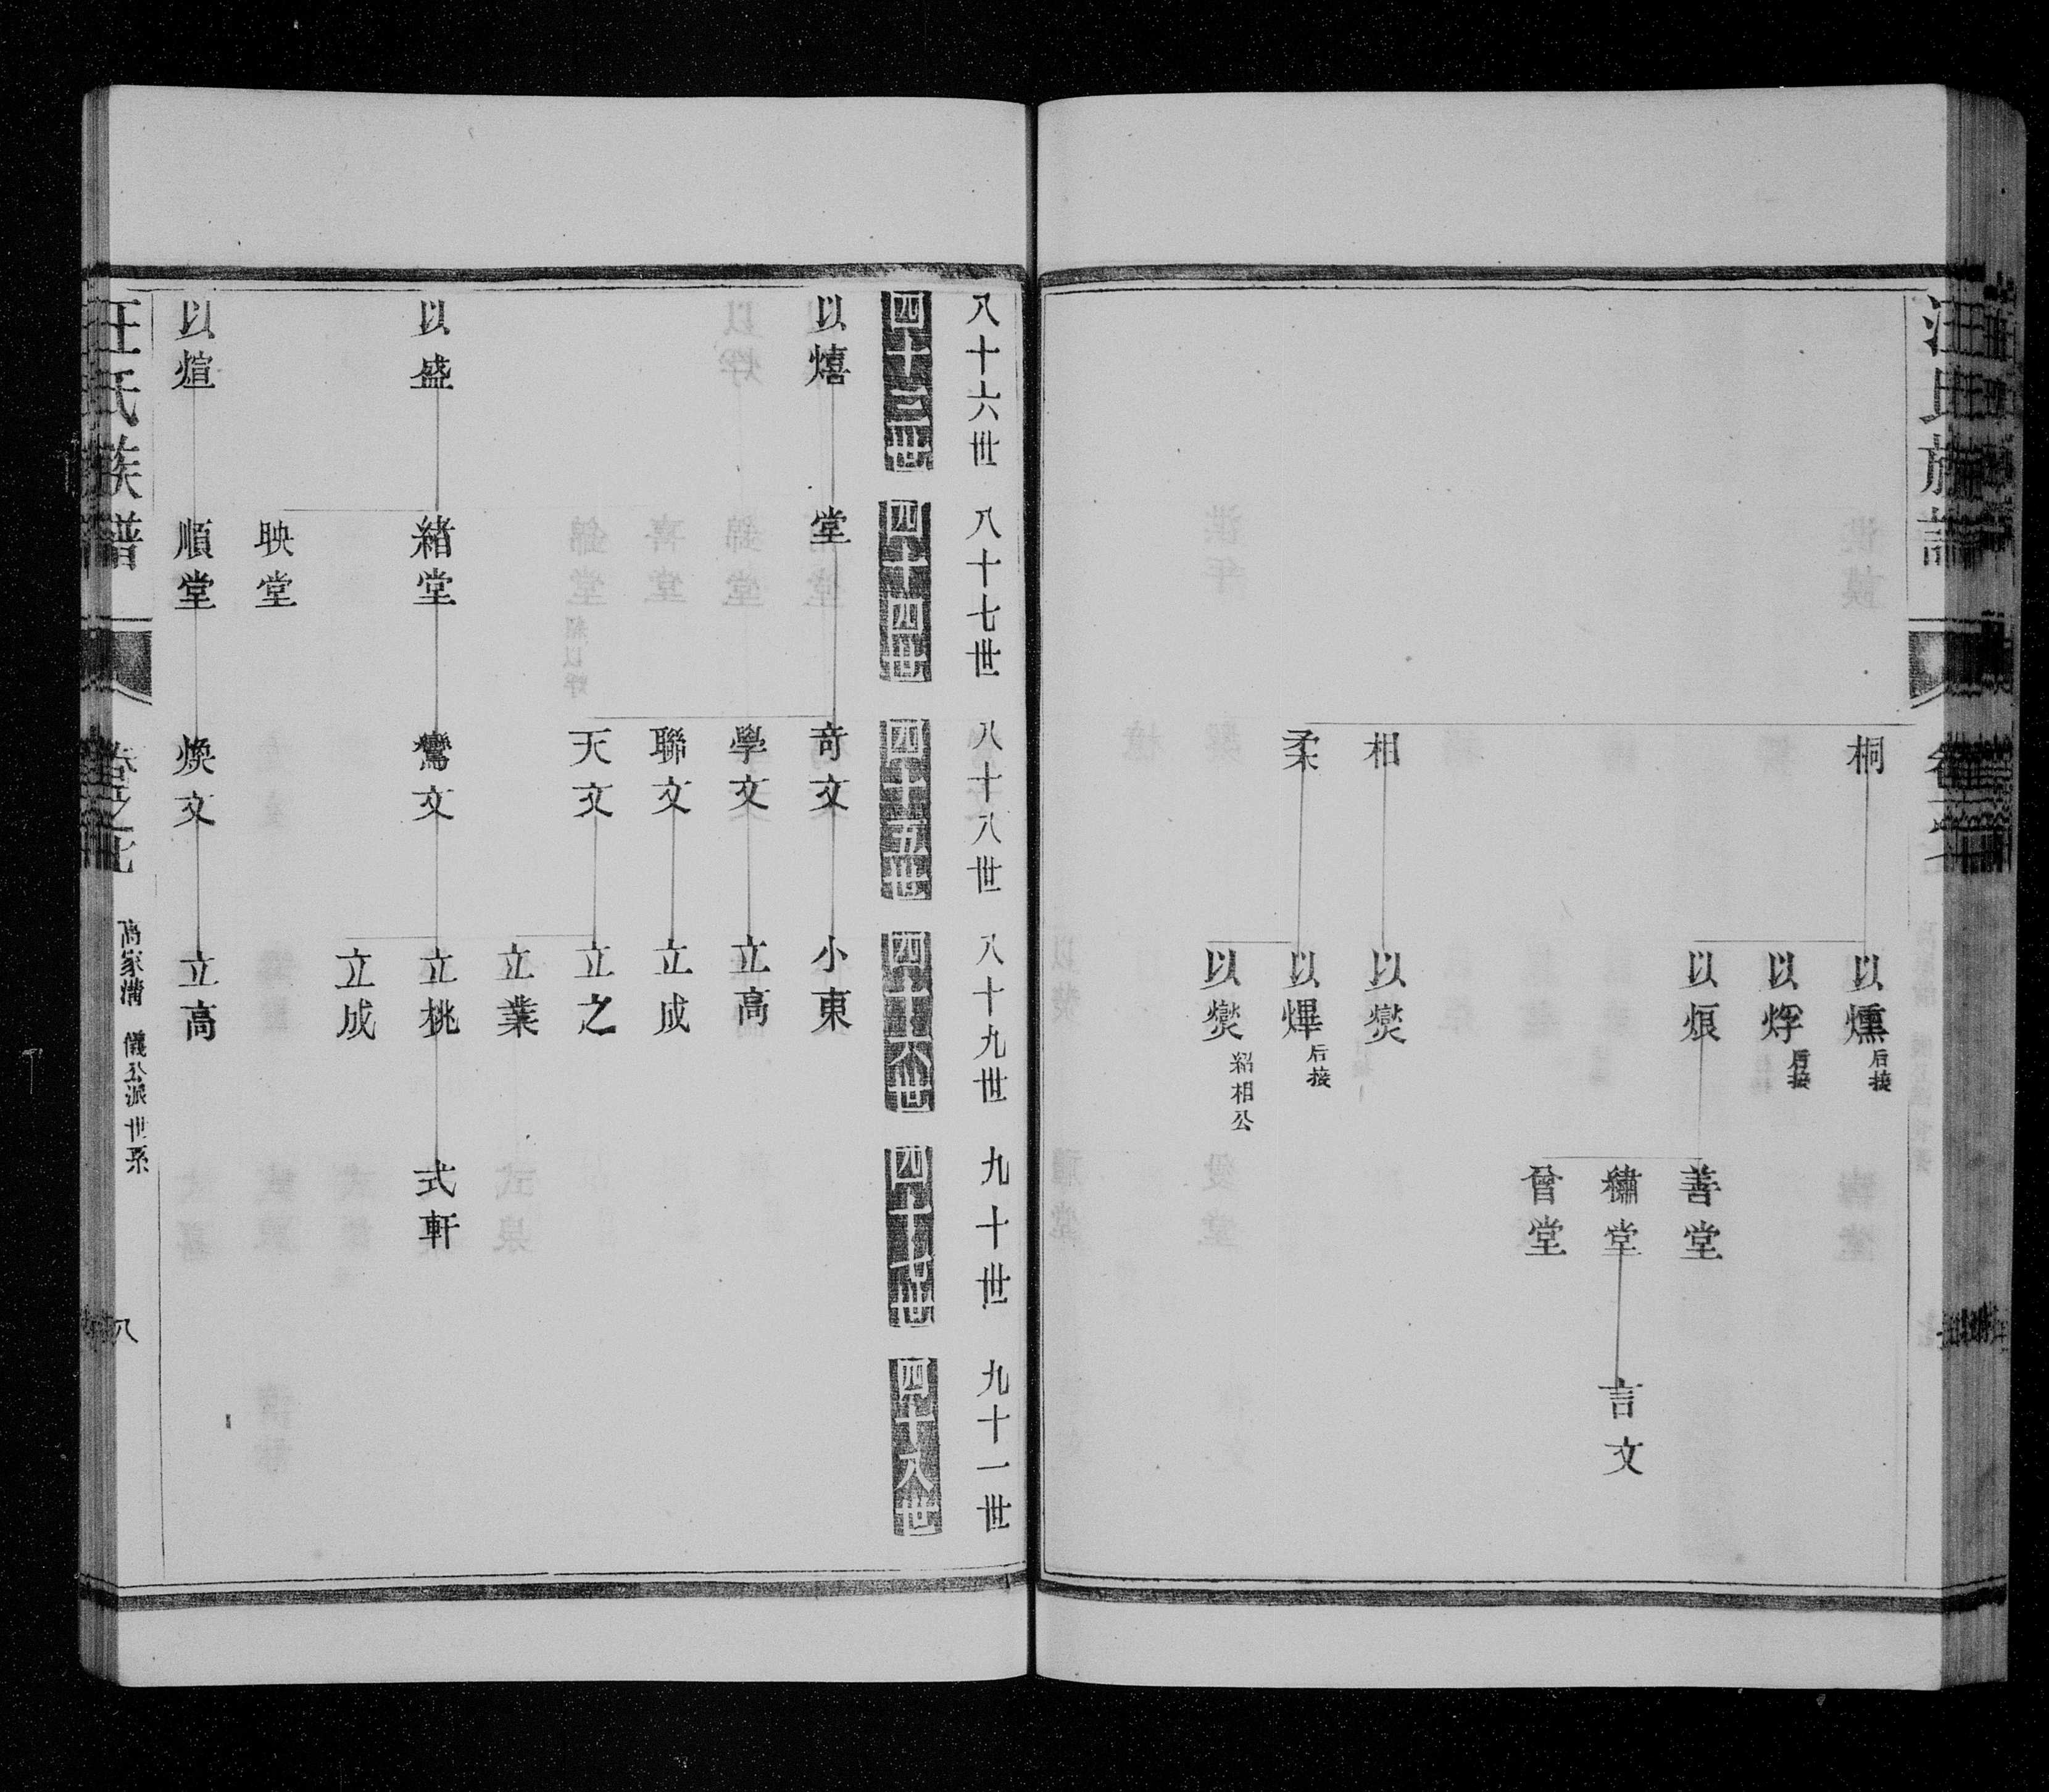 汪氏族譜
卷之七
桐
以燻
后接
以烰
后接
以烺
善堂
繡堂
言文
晉堂
相
以爕
柔
以熚
后接
以爕
紹相公
八十六世
八十七世
八十八世
八十九世
九十世
九十一世
四十三世
四十四世
四十五世
四十六世
四十七世
四十八世
以熺
堂
奇文
小東
學文
立高
聯文
立成
天文
立之
立業
以盛
緒堂
鸞文
立桃
式軒
立成
映堂
以煊
順堂
煥文
立高
汪氏族譜
卷之七
高家溝
儀公派世系
八